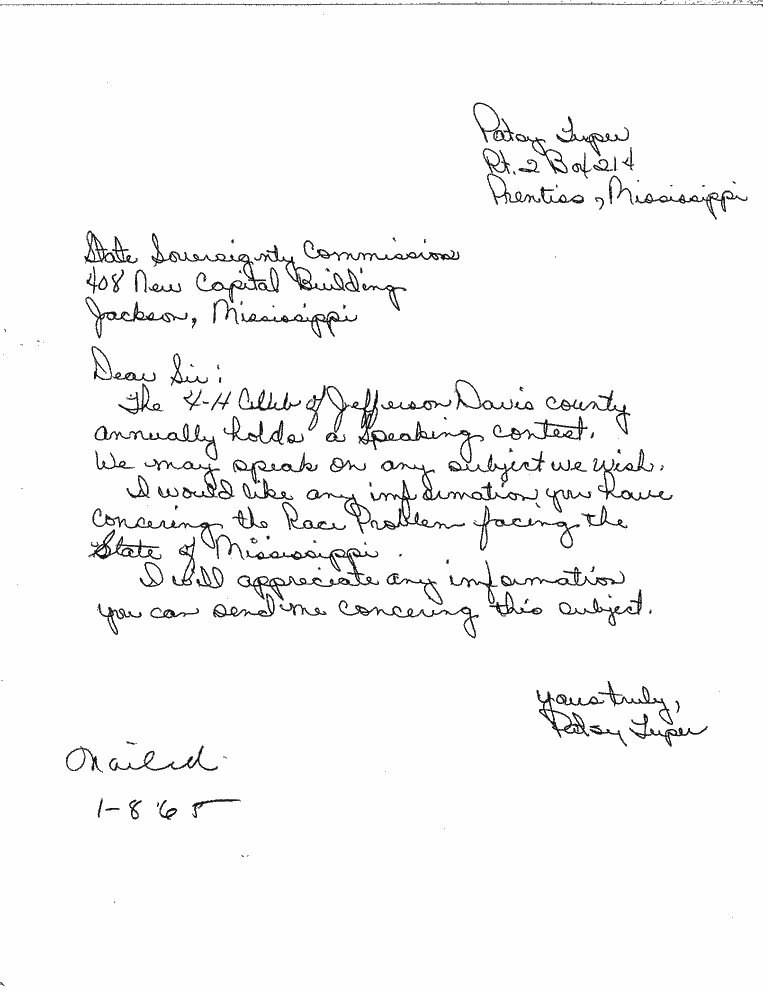 Patsy Luper
Rt. 2 Box 214
Prentiss, Mississippi
State Sovereignty Commission
408 New Capital Building
Jackson, Mississippi
Dear Sir:
The 4-H Club of Jefferson Davis county
annually holds a speaking contest.
We may speak on any subject we wish.
I would like any information you have
concering the Race Problem facing the
State of Mississippi.
I will appreciate any information
you can send me concering this subject.
yours truly,
Patsy Luper
Mailed
1-8'65